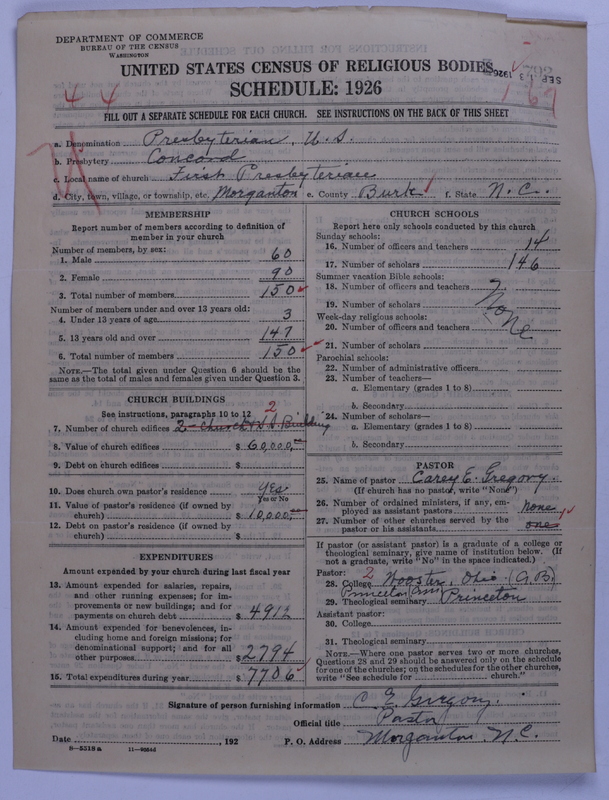 DEPARTMENT OF COMMERCE
BUREAU OF THE CENSUS
WASHINGTON
UNITED STATES CENSUS OF RELIGIOUS BODIES
SCHEDULE: 1926
SEP 13 1926
4 4
169
FILL OUT A SEPARATE SCHEDULE FOR EACH CHURCH. SEE INSTRUCTIONS ON THE BACK OF THIS SHEET
a. Denomination Presbyterian, U.S.
b. Presbytery Concord
c. Local name of church First Presbyterian
d. City, town, village, or township, etc. Morganton e. County Burk f. State N.C.
MEMBERSHIP
Report number of members according to definition of
member in your church
Number of members, by sex:
1. Male 60
2. Female 90
3. Total number of members 150
Number of members under and over 13 years old:
4. Under 13 years of age 3
5. 13 years old and over 147
6. Total number of members 150
NOTE.—The total given under Question 6 should be
same as the total of males and females given under Question 3.
CHURCH BUILDINGS
See instructions, paragraphs 10 to 12 2
7. Number of church edifices 2 - church & S.S. Building
8. Value of church edifices $ 60,000.—
9. Debt on church edifices $
10. Does church own pastor's residence yes
Yes or No
11. Value of pastor's residence (if owned by
church) $ 10,000.—
12. Debt on pastor's residence (if owned by
church) $
EXPENDITURES
Amount expended by your church during last fiscal year
13. Amount expended for salaries, repairs,
and other running expenses; for im-
provements or new buildings; and for
payments on church debt $ 4912
14. Amount expended for benevolences, in-
cluding home and foreign missions; for
denominational support; and for all
other purposes $ 2794
15. Total expenditures during year $ 7706
CHURCH SCHOOLS
Report here only schools conducted by this church
Sunday schools:
16. Number of officers and teachers 14
17. Number of scholars 146
Summer vacation Bible schools:
18. Number of officers and teachers
19. Number of scholars None
Week-day religious schools:
20. Number of officers and teachers
21. Number of scholars
Parochial schools:
22. Number of administrative officers
23. Number of teachers—
a. Elementary (grades 1 to 8)
b. Secondary
24. Number of scholars—
a. Elementary (grades 1 to 8)
b. Secondary
PASTOR
25. Name of pastor Carey E. Gregory.
(If church has no pastor, write "None")
26. Number of ordained ministers, if any, em-
ployed as assistant pastors none
27. Number of other churches served by the
pastor or his assistants one
If pastor (or assistant pastor) is a graduate of a college or
theological seminary, give name of institution below. (If
not a graduate, write "No" in the space indicated.)
Pastor: 2
28. College Wooster, Ohio (A.B.)
Princeton (AM)
29. Theological seminary Princeton
Assistant pastor:
30. College
31. Theological seminary
NOTE.—Where one pastor serves two or more churches,
Questions 28 and 29 should be answered only on the schedule
for one of the churches; on the schedules for the other churches,
write "See schedule for church."
Signature of person furnishing information C. E. Gregory.
Official title Pastor
Date , 192 P. O. Address Morganton, N.C.
8—5518a 11—9054d